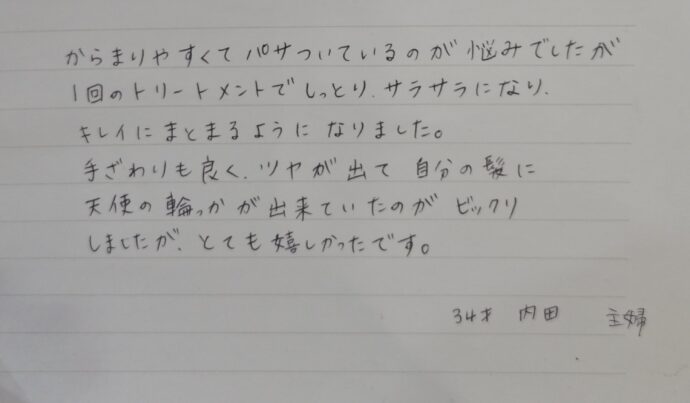 からまりやすくて パサついているのが 悩みでしたが
1回のトリートメントで しっとり、サラサラになり、
キレイにまとまるように なりました。
手ざわりも良く、ツヤが出て 自分の髪に
天使の輪っかが出来ていたのが ビックリ
しましたが、とても嬉しかったです。
34才 内田 主婦